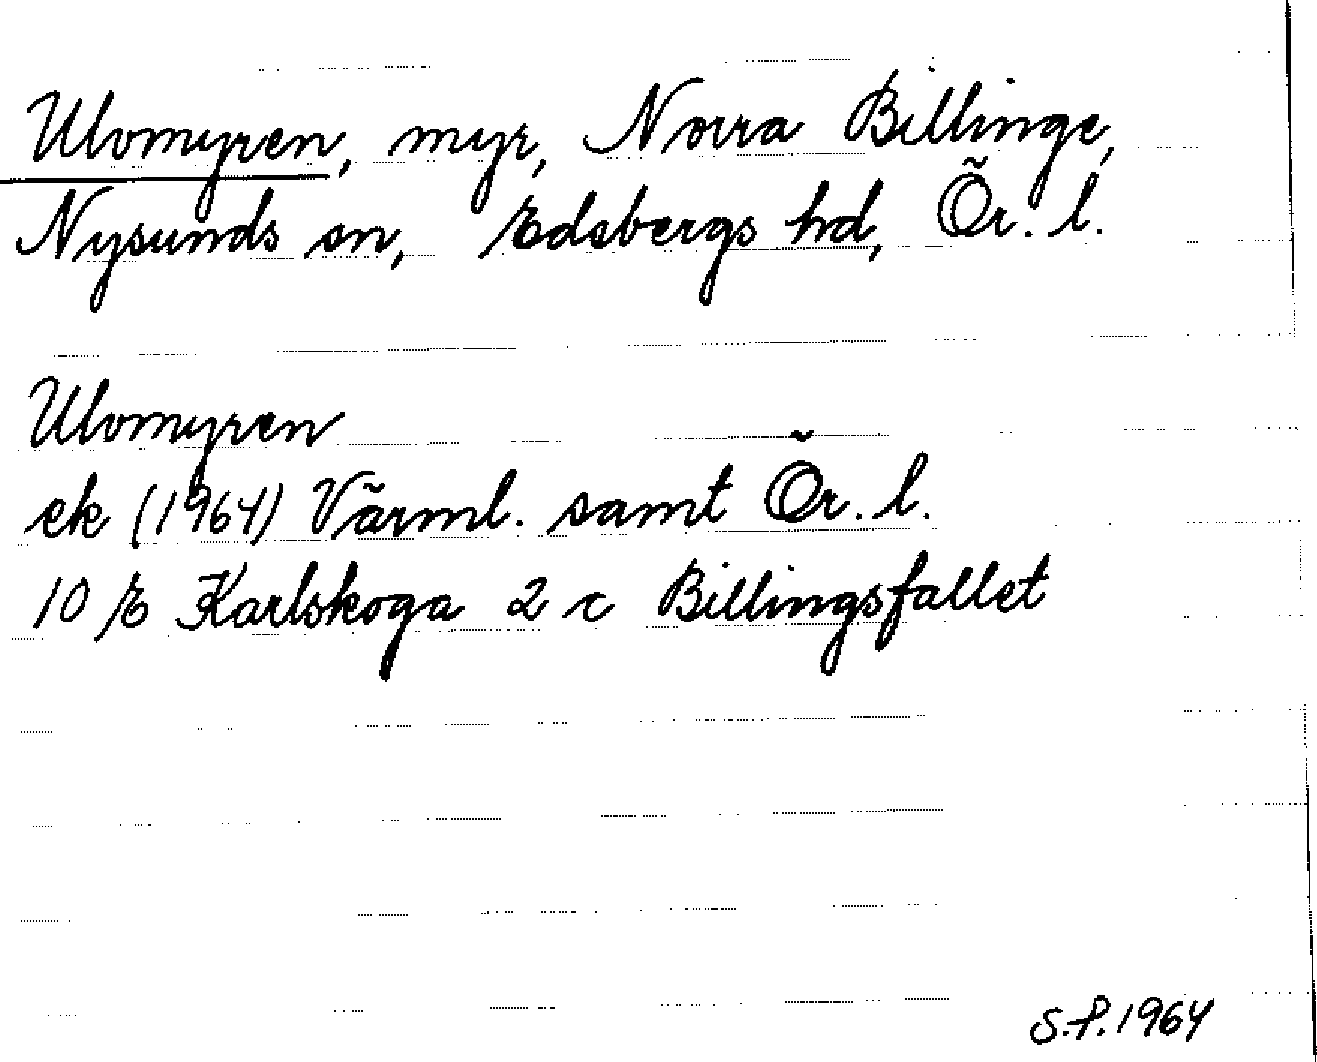 Ulvmyren, myr, Norra Billinge,
Nysunds sn, Edsbergs hd, Ör. l.
Ulvmyren
ek (1964) Värml. samt Ör. l.
10 E Karlskoga 2 c Billingsfallet
S.P. 1964